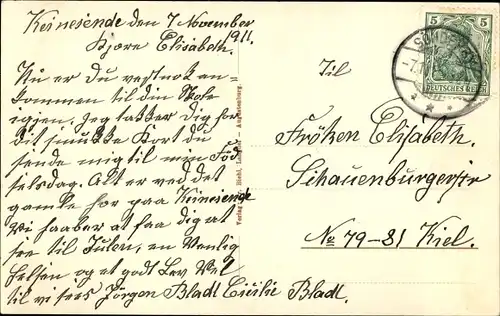 Keinesende den 7 November
1911.
Kjære Elisabeth.
Nu er Du vestnok an-
kommen til din Skole
igjen. Jeg takker Dig for
dit smukke Kort du
sende mig til min Föd-
selsdag. Alt er ved det
gamle her paa Keinesende
Vi haaber at faa dig at
see til Julen, en Venlig
Helsen og et godt Lev Vel
til vi sees Jörgen Bladt Cicilie Bladt.
Til
Fröken Elisabeth.
Schauenburgerstr
No 79-81 Kiel.
5 5
DEUTSCHES REICH
SONDERBURG
-7.
* *
Verlag
Augustenburg.